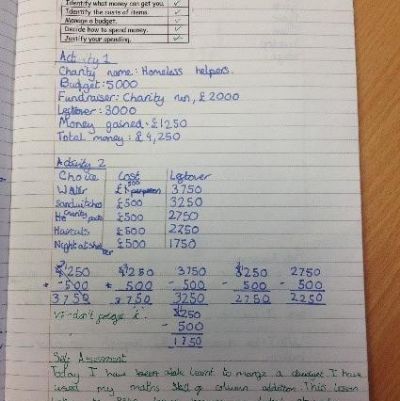 Identify what money can get you. ✓
Identify the costs of items. ✓
Manage a budget. ✓
Decide how to spend money. ✓
Justify your spending. ✓
Activity 1
Charity name: Homeless helpers.
Budget: 5000
Fundraiser: Charity run, £2000
Leftover: 3000
Money gained: £1250
Total money: £4,250
Activity 2
Choice Cost Leftover
Water £500 3750
Sandwitches £500 3250
£500 2750
Haircuts £500 2250
Night at shelter £500 1750
4250 4250 3750 3250 2750
- 500 - 500 - 500 - 500 - 500
3750 3750 3250 2750 2250
2250
- 500
1750
Self Assessment
Today I have learnt to manage a budget I have
used my maths skill of column addition. This lesson